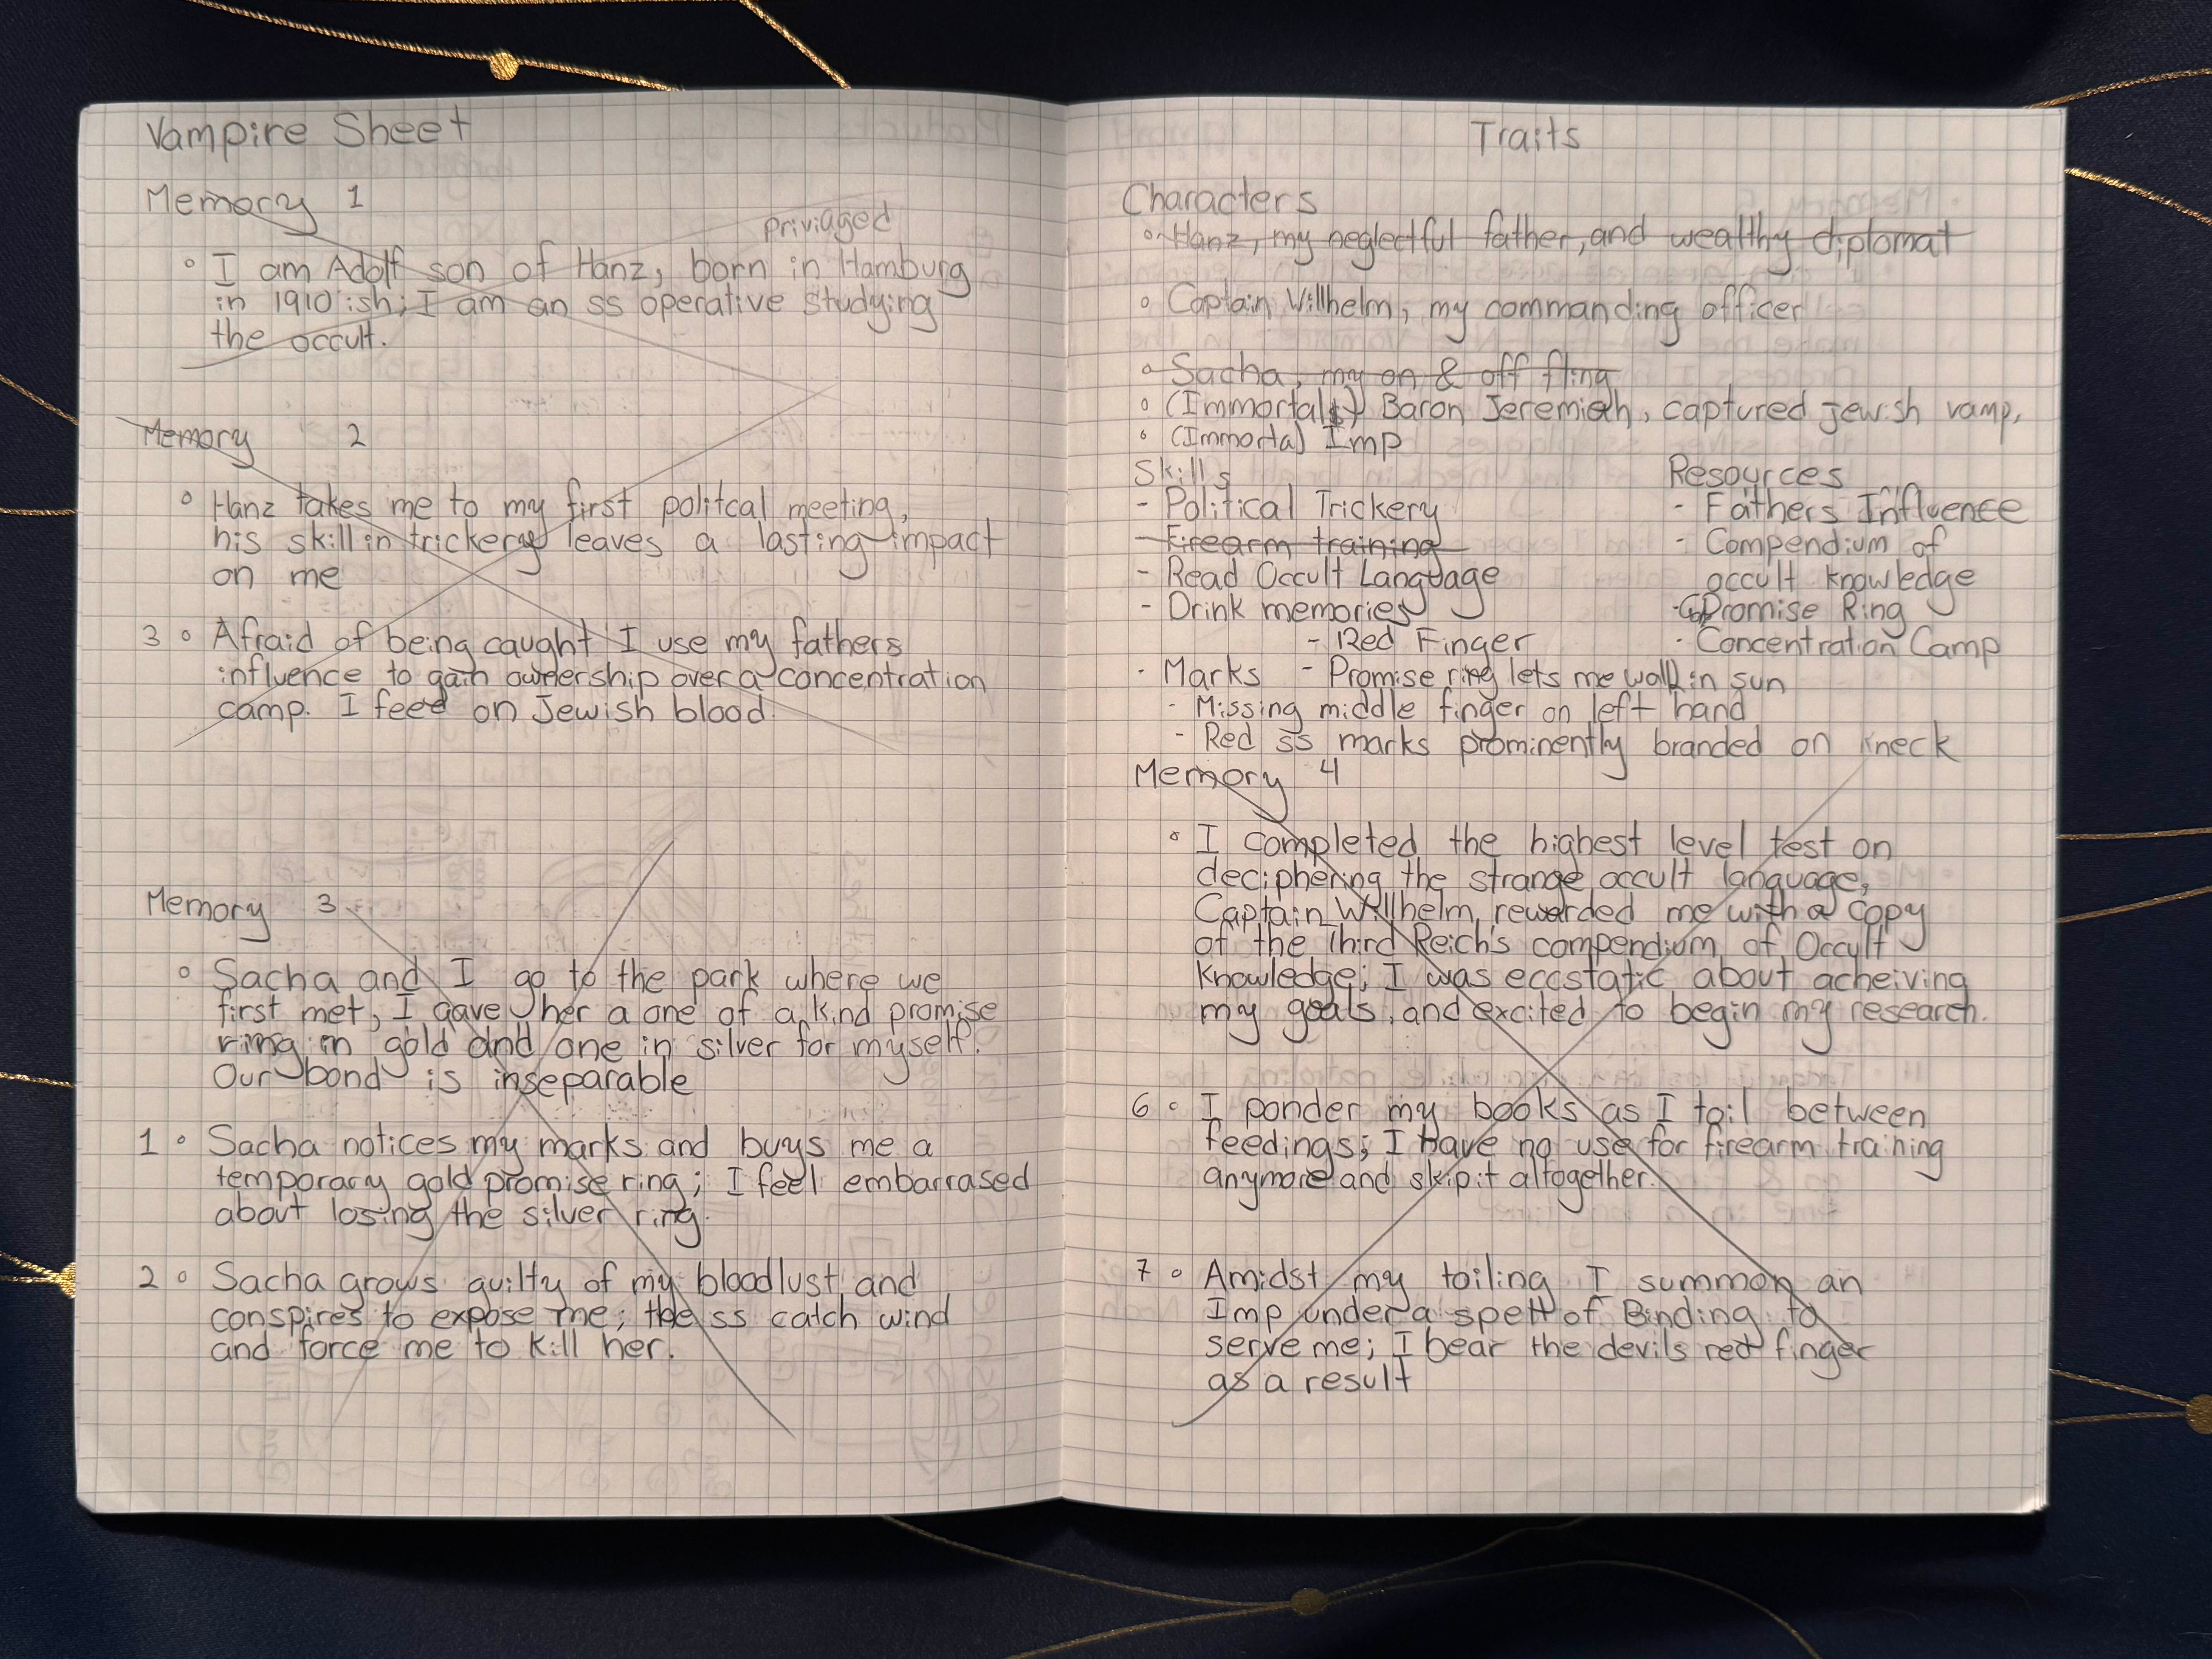 Vampire Sheet
Memory 1
priviaged
I am Adolf son of Hanz, born in Hamburg
in 1910'ish; I am an ss operative studying
the occult.
Memory 2
Hanz takes me to my first politcal meeting,
his skill in trickery leaves a lasting impact
on me
3 Afraid of being caught I use my fathers
influence to gain ownership over a concentration
camp. I feed on Jewish blood.
Memory 3
Sacha and I go to the park where we
first met, I gave her a one of a kind promise
ring in gold and one in silver for myself.
Our bond is inseparable
1 Sacha notices my marks and buys me a
temporary gold promise ring; I feel embarrased
about losing the silver ring.
2 Sacha grows guilty of my bloodlust and
conspires to expose me; the ss catch wind
and force me to kill her.
Traits
Characters
Hanz, my neglectful father, and wealthy diplomat
Captain Willhelm, my commanding officer
Sacha, my on & off fling
(Immortal) Baron Jeremiah, captured jewish vamp.
(Immortal) Imp
Skills
- Political Trickery
- Firearm training
- Read Occult Language
- Drink memories
- Red Finger
Resources
- Fathers Influence
- Compendium of
occult knowledge
- Promise Ring
- Concentration Camp
- Marks - Promise ring lets me walk in sun
- Missing middle finger on left hand
- Red ss marks prominently branded on kneck
Memory 4
I completed the highest level test on
deciphering the strange occult language,
Captain Willhelm rewarded me with a copy
of the Third Reich's compendium of Occult
Knowledge; I was eccstatic about acheiving
my goals, and excited to begin my research.
6 I ponder my books as I toil between
feedings; I have no use for firearm training
anymore and skip it altogether.
7 Amidst my toiling I summon an
Imp under a spell of Binding to
serve me; I bear the devils red finger
as a result